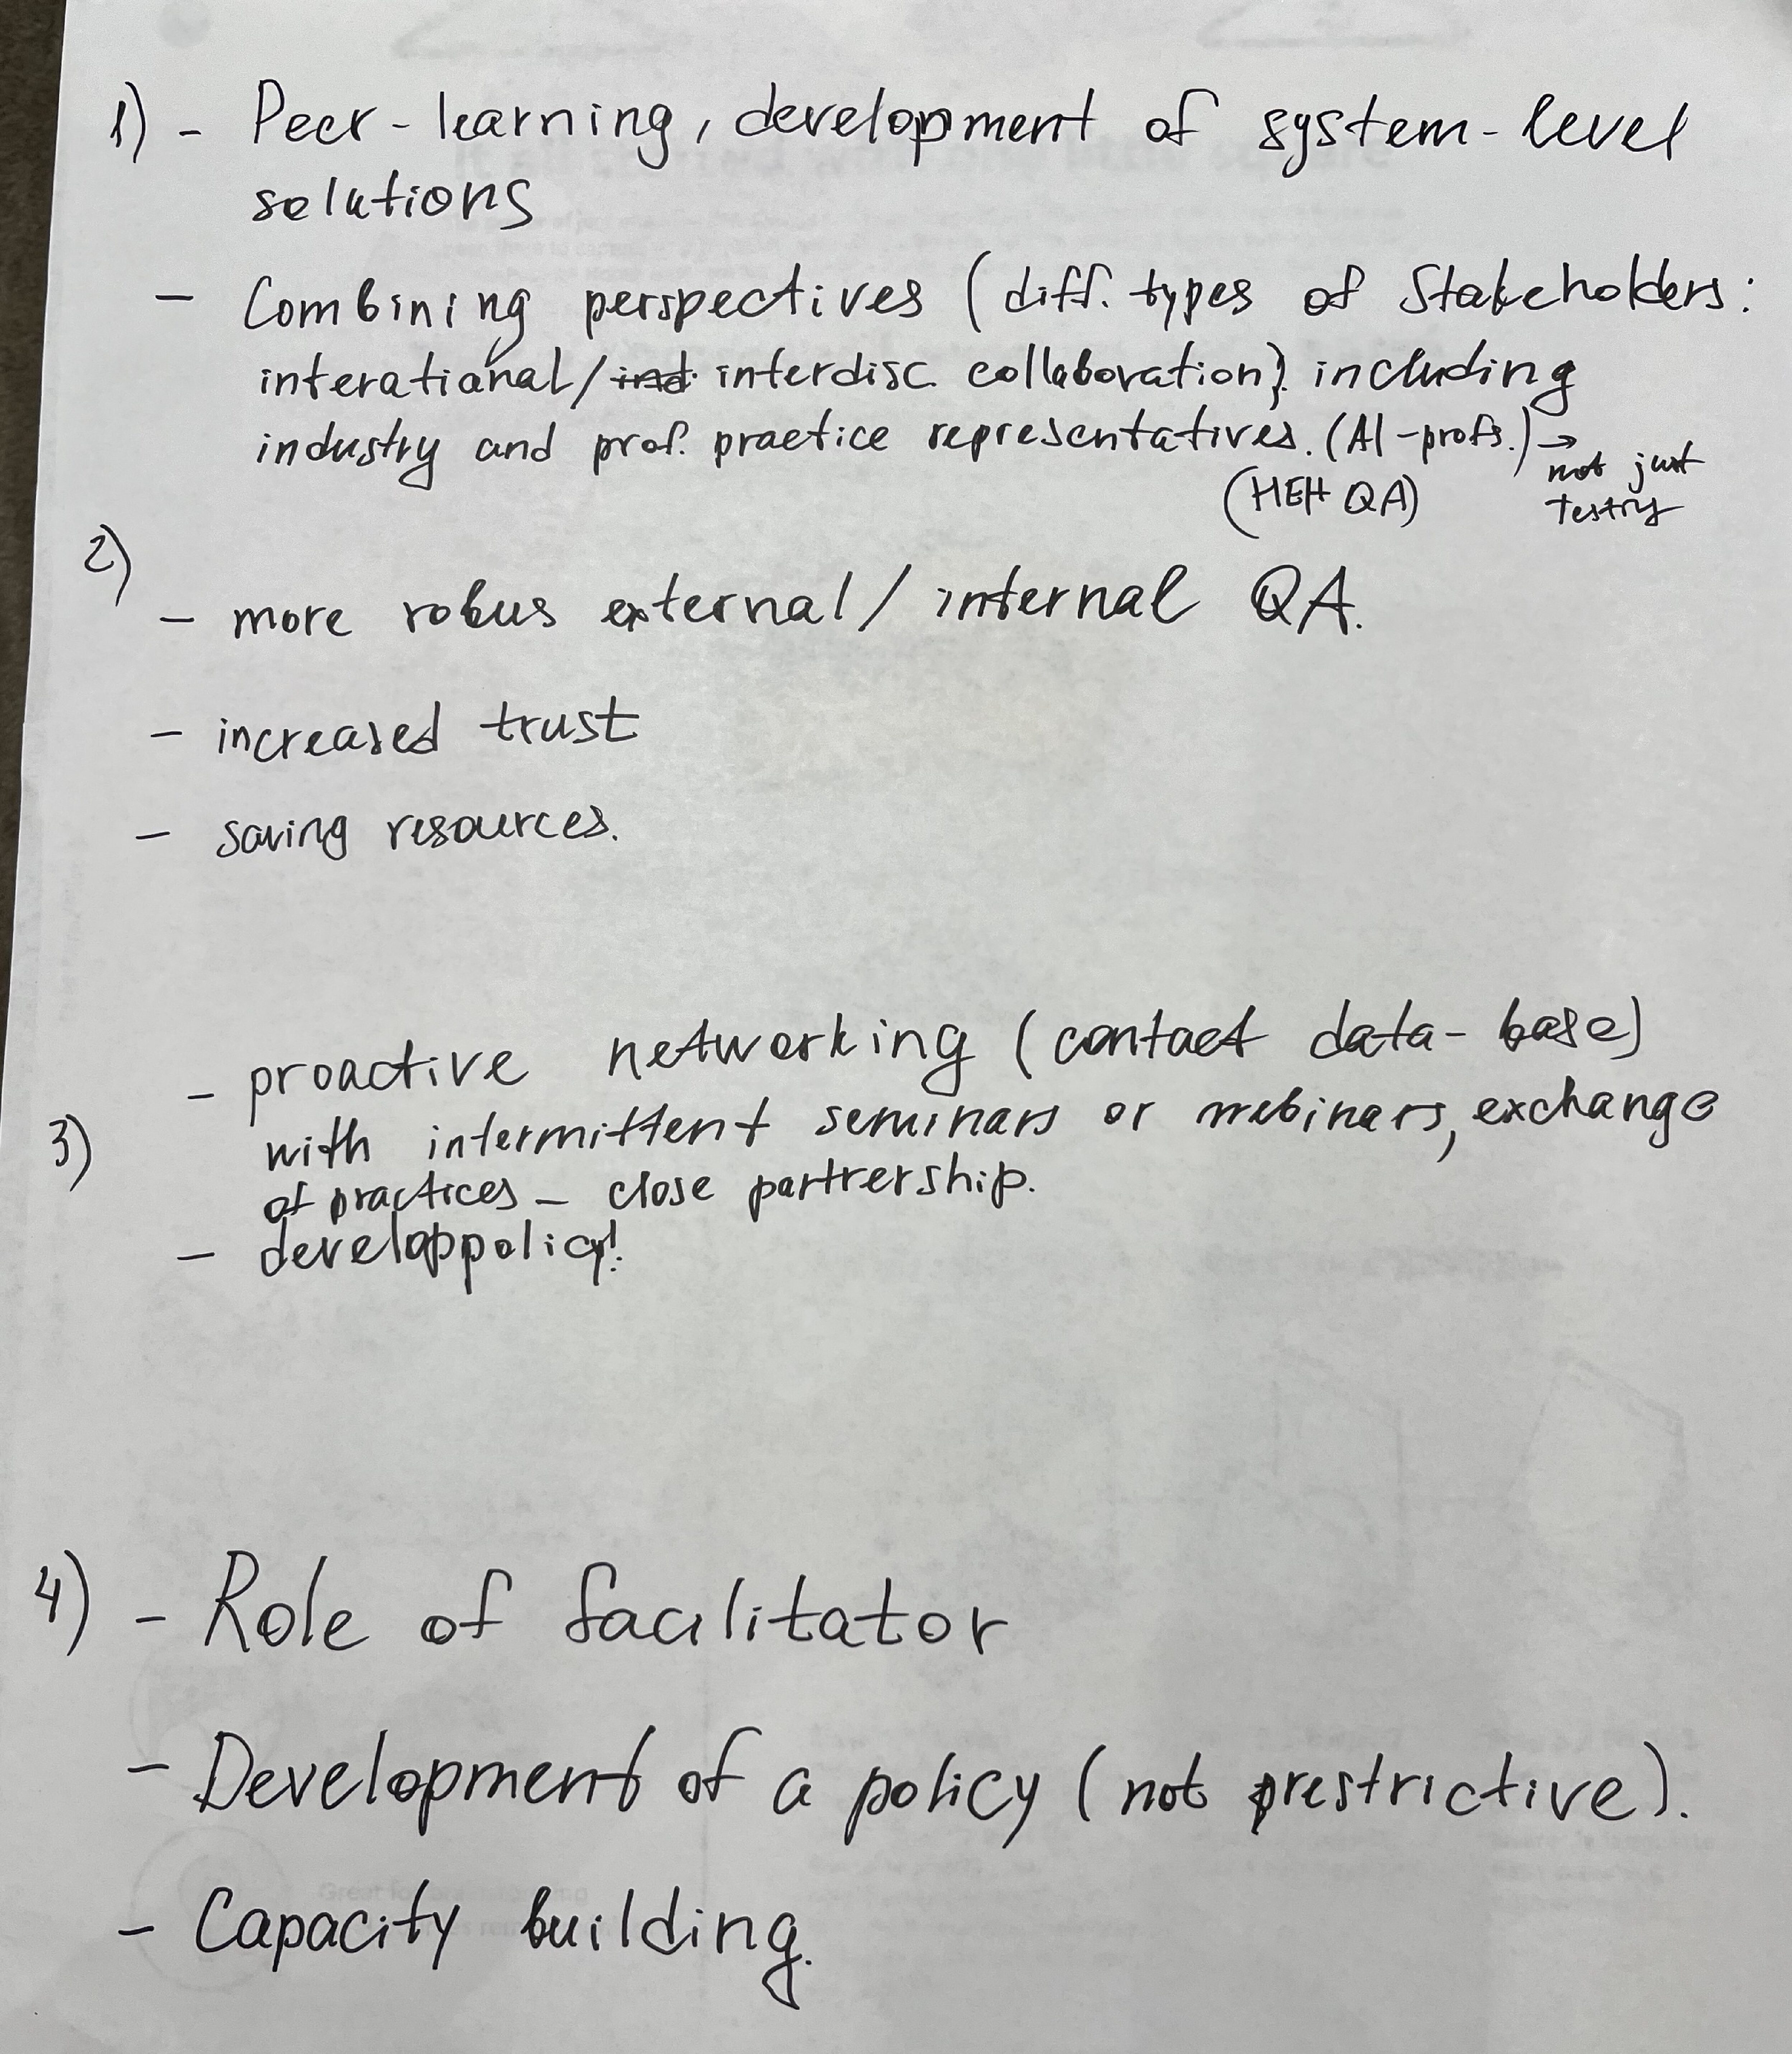 1) - Peer-learning, development of system-level
solutions
- Combining perspectives (diff. types of Stakeholders:
interational/ind. interdisc. collaboration) including
industry and prof. practice representatives. (AI-profs.) →
not just
(HEH QA)
testing
2)
- more robus external/internal QA.
- increased trust
- saving resources.
- proactive networking (contact data-base)
3)
with intermittent seminars or webinars, exchange
of practices - close partnership.
- develop policy!
4) - Role of facilitator
- Development of a policy (not prestrictive).
- Capacity building.